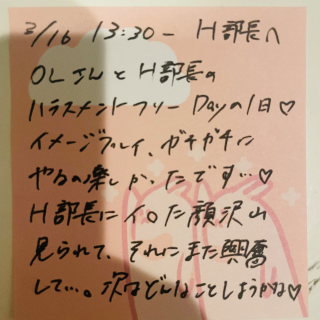 3/16 13:30- H部長へ
OLさんとH部長の
ハラスメントフリーDayの1日♡
イメージプレイ、ガチガチに
やるの楽しかったです…♡
H部長にイロんな顔沢山
見られて、それにまた興奮
して…。次はどんなことしようかな♡